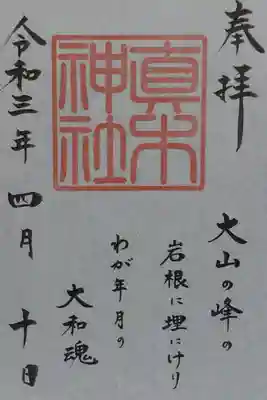 奉拝
真木
神社
大山の峰の
岩根に埋にけり
わが年月の
大和魂
令和三年 四月 十日